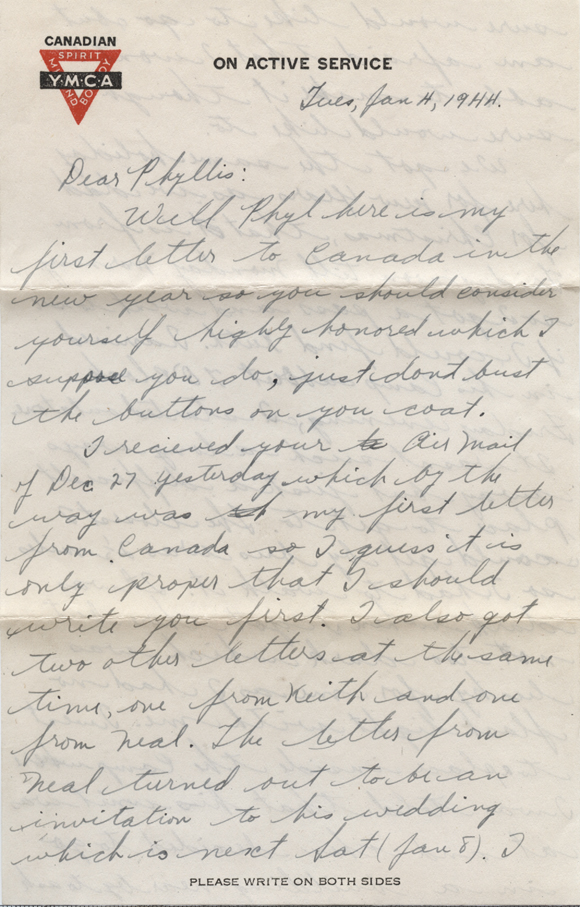 CANADIAN
SPIRIT
Y·M·C·A
MIND BODY
ON ACTIVE SERVICE
Tues, Jan 4, 1944.
Dear Phyllis:
Well Phyl here is my
first letter to Canada in the
new year so you should consider
yourself highly honored which I
suppose you do, just dont bust
the buttons on you coat.
I recieved your Air Mail
of Dec 27 yesterday which by the
way was my first letter
from Canada so I guess it is
only proper that I should
write you first. I also got
two other letters at the same
time, one from Keith and one
from Neal. The letter from
Neal turned out to be an
invitation to his wedding
which is next Sat (Jan 8). I
PLEASE WRITE ON BOTH SIDES